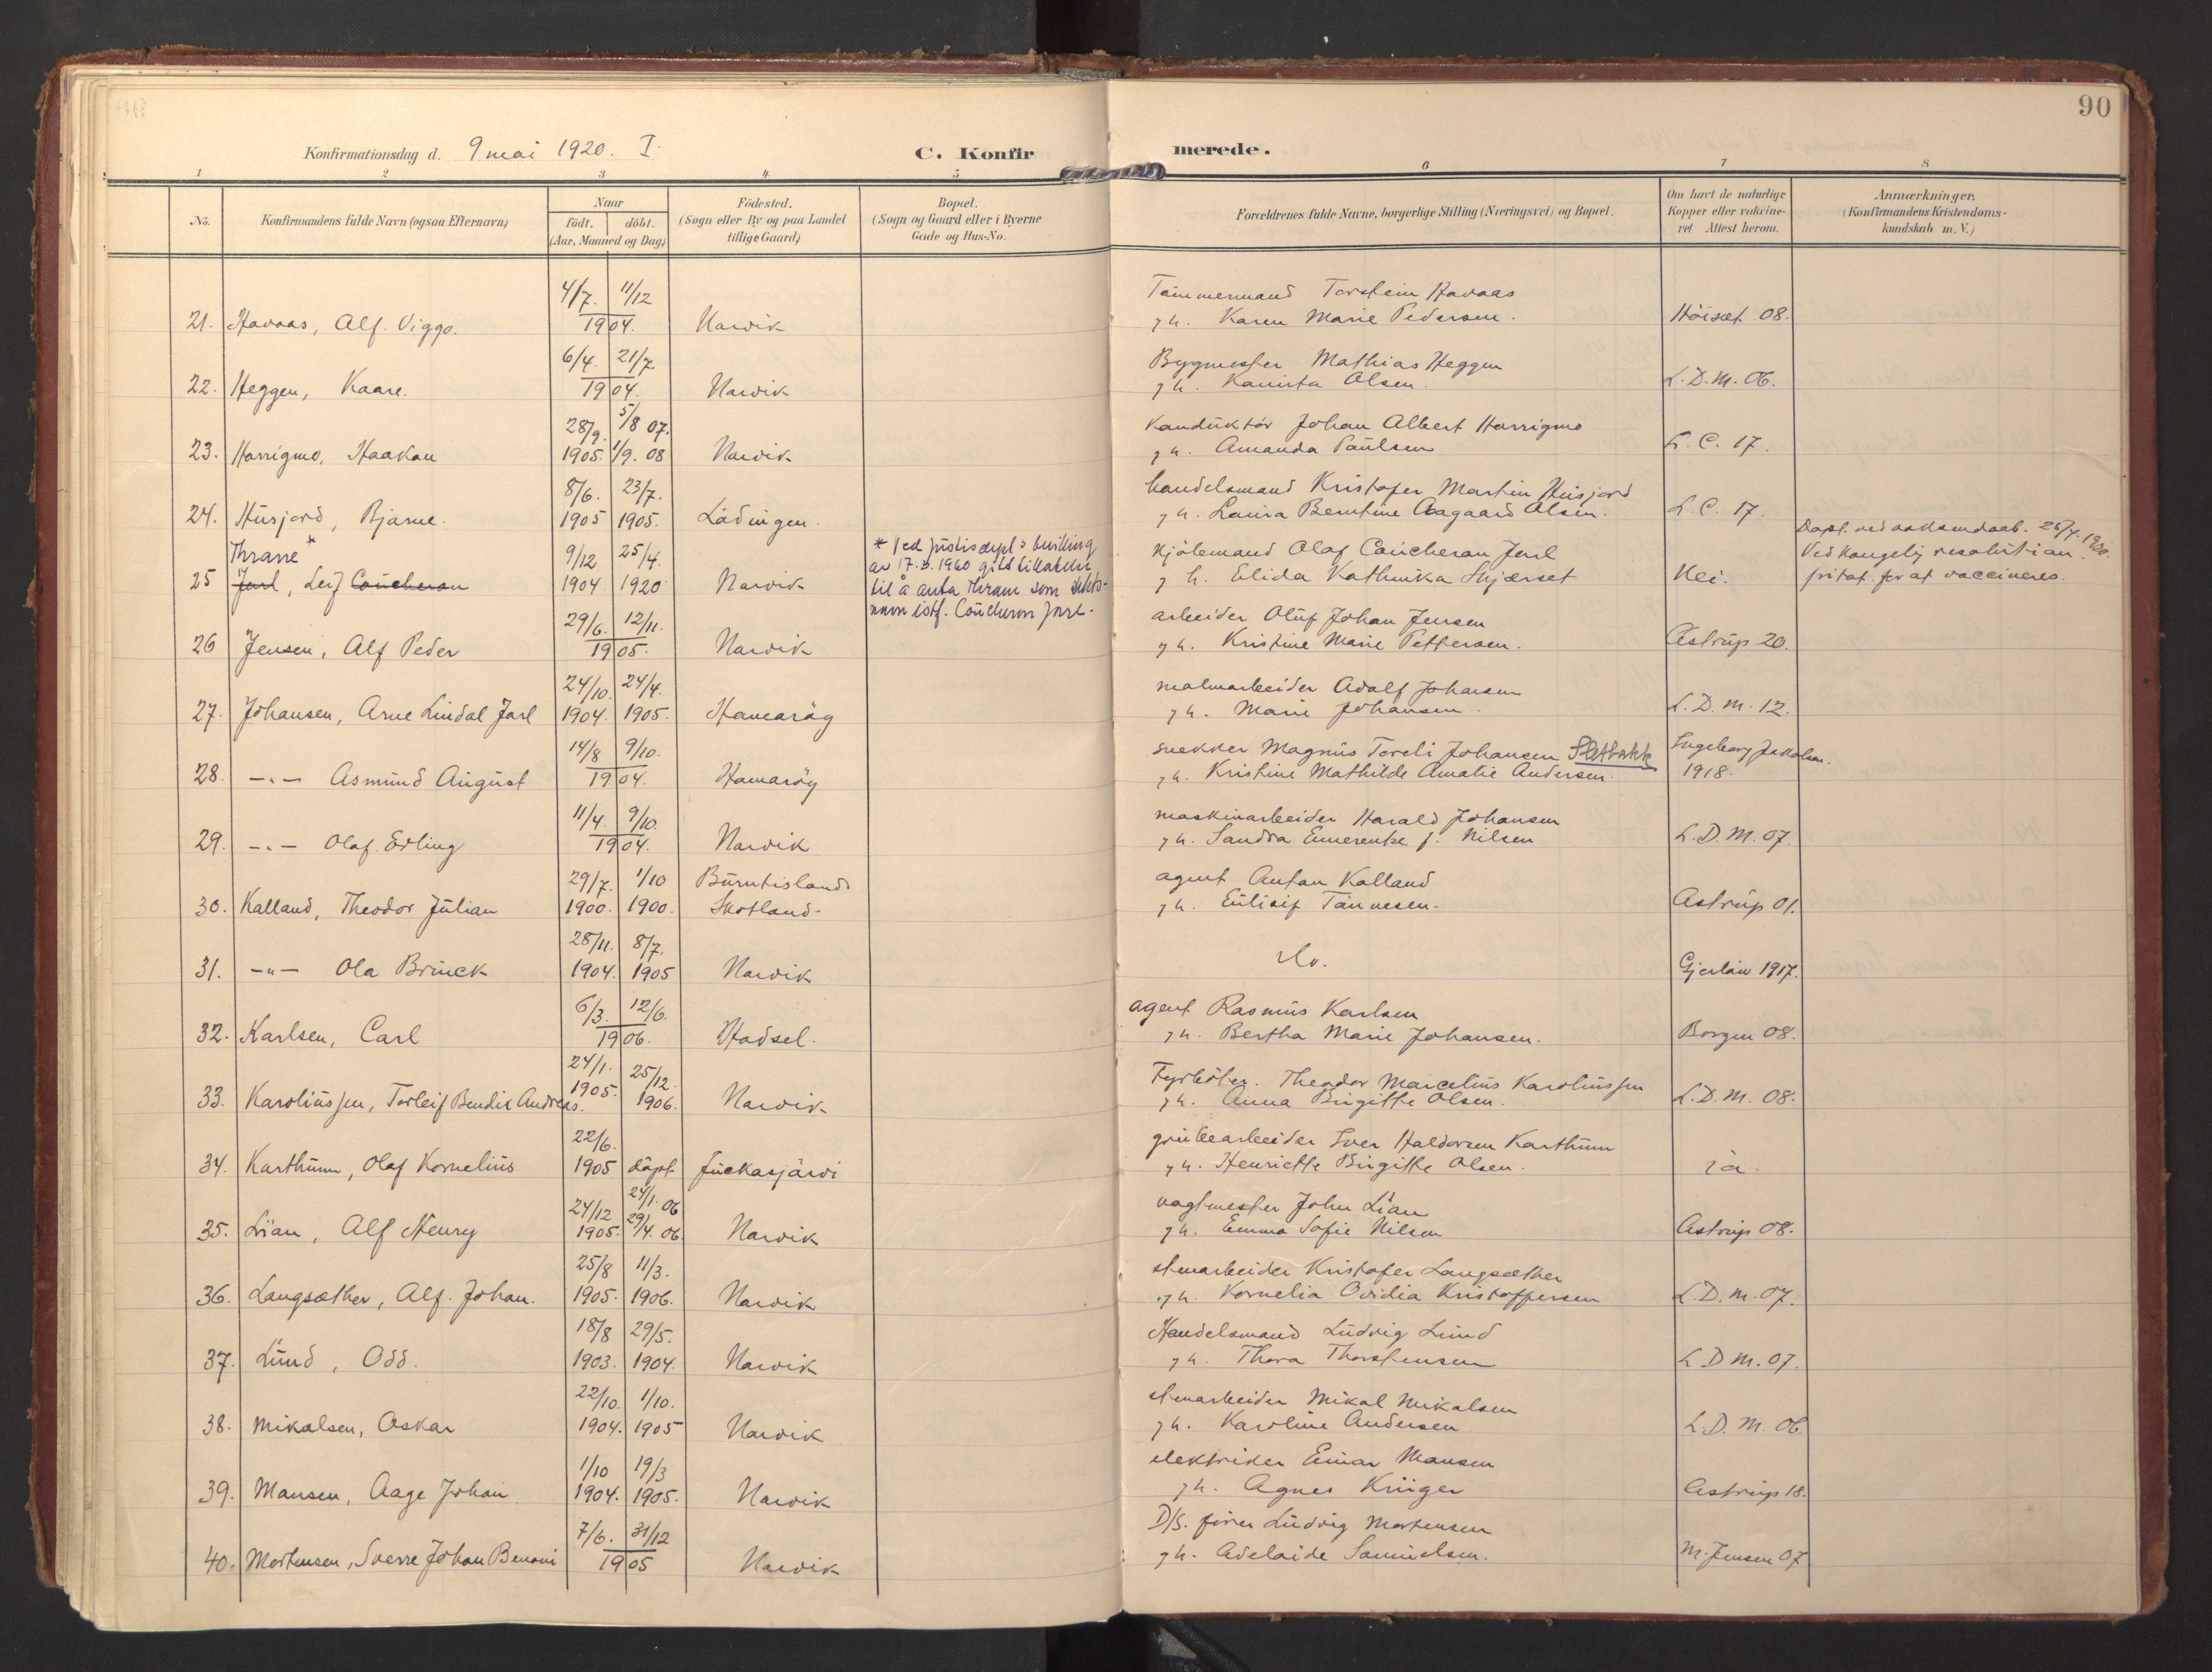 90
Konfirmationsdag d. 9 mai 1920. I.
C. Konfirmerede.
1 2 3 4 5 6 7 8
No.
Konfirmandens fulde Navn (ogsaa Efternavn)
Naar
födt. döbt.
(Aar, Maaned og Dag)
Födested.
(Sogn eller By og paa Landet
tillige Gaard)
Bopæl.
(Sogn og Gaard eller i Byerne
Gade og Hus-No.
Forældrenes fulde Navne, borgerlige Stilling (Næringsvei) og Bopæl.
Om havt de naturlige
Kopper eller vakcine-
ret Attest herom.
Anmærkninger.
(Konfirmandens Kristendoms-
kundskab m. V.)
4/7. 11/12 Tömmermand Torstein Havaas
21. Havaas, Alf. Viggo. 1904. Narvik g h. Karen Marie Pedersen. Höiset 08.
6/4. 21/7. Bygmester Mathias Heggen
22. Heggen, Kaare. 1904. Narvik g h. Olsen. L.D.M. 06.
28/9. 5/8 07. Konduktör Johan Albert Horrigmo
23. Horrigmo, Haakon 1905. 1/9. 08 Narvik g h. Amanda Paulsen L.C. 17.
8/6. 23/7. handelsmand Kristofer Martin Husjord
24. Husjord, Bjarne. 1905 1905. Lödingen. g h. Laura Berntine Aagaard Olsen. L.C. 17.
Thrane * 9/12 25/4. * Ved justisdept's bevilling
av 17.3.1960 gitt tillatelse
til å anta Thrane som slekts-
navn istf. Coucheron Jarl.
Kjölemand Olaf Coucheron Jarl
Döpt. ved voksendaab. 25/4. 1920.
Ved kongelig resolution
fritat. for at vaccineres.
25 Jarl, Leif Coucheron 1904 1920 Narvik g h. Elida Kathinka Skjærset Nei.
29/6. 12/11. arbeider Oluf Johan Jensen
26 Jensen, Alf Peder 1905. Narvik g h. Kristine Marie Pettersen. Astrup 20.
24/10. 24/4. malmarbeider Adolf Johansen
27. Johansen, Arne Lindal Jarl 1904. 1905. Hamaröy g h. Marie Johansen. L.D.M. 12.
14/8 9/10. snekker Magnus Toreli Johansen Sletbakk Ingeborg Jakobsen.
28. -"- Asmund August 1904. Hamaröy g h. Kristine Mathilde Amalie Andersen. 1918.
11/4. 9/10. maskinarbeider Harald Johansen
29. -"- Olaf. Erling 1904. Narvik g h. Sandra Emerentse f. Nilsen L.D.M. 07.
29/7. 1/10 Burntisland agent Anton Kalland
30. Kalland, Theodor Julian 1900. 1900. Skotland. g h. Tönnesen. Astrup 01.
28/11. 8/7. do.
31. -"- Ola Brinck 1904. 1905 Narvik Gjerlöw 1917.
6/3. 12/6. agent Rasmus Karlsen
32. Karlsen, Carl 1906. Hadsel. g h. Bertha Marie Johansen. Borgen 08.
24/1. 25/12. Fyrböter. Theodor Marcelius Karoliussen
33. Karoliussen, Torleif Bendix Andreas. 1905. 1906. Narvik g h. Anna Birgitte Olsen. L.D.M. 08.
22/6. grubearbeider Iver Haldorsen Karthum
34. Karthum, Olaf Kornelius 1905 döpt. Juckasjärvi g h. Henriette Birgitte Olsen. ja.
24/12 24/1. 06 vagtmester John Lian
35. Lian, Alf Henry 1905. 29/4. 06. Narvik g h. Emma Sofie Nilsen Astrup 08.
25/8 11/3. stenarbeider Kristofer Langsæther
36. Langsæther, Alf. Johan. 1905. 1906. Narvik g h. Kornelia Ovidia Kristoffersen L.D.M. 07.
18/8 29/5. Handelsmand Ludvig Lund
37. Lund, Odd. 1903. 1904. Narvik g h. Thora Thorstensen L.D.M. 07.
22/10. 1/10. stenarbeider Mikal Mikalsen
38. Mikalsen, Oskar 1904. 1905 Narvik g h. Karoline Andersen L.D.M. 06.
1/10 19/3 elektriker Einar Monsen
39. Monsen, Aage Johan 1904. 1905. Narvik g h. Agnes Krüger Astrup 18.
7/6. 31/12 D/S. förer Ludvig Mortensen
40. Mortensen, Sverre Johan Benoni 1905 Narvik g h. Adelaide Samuelsen. M. Jensen 07